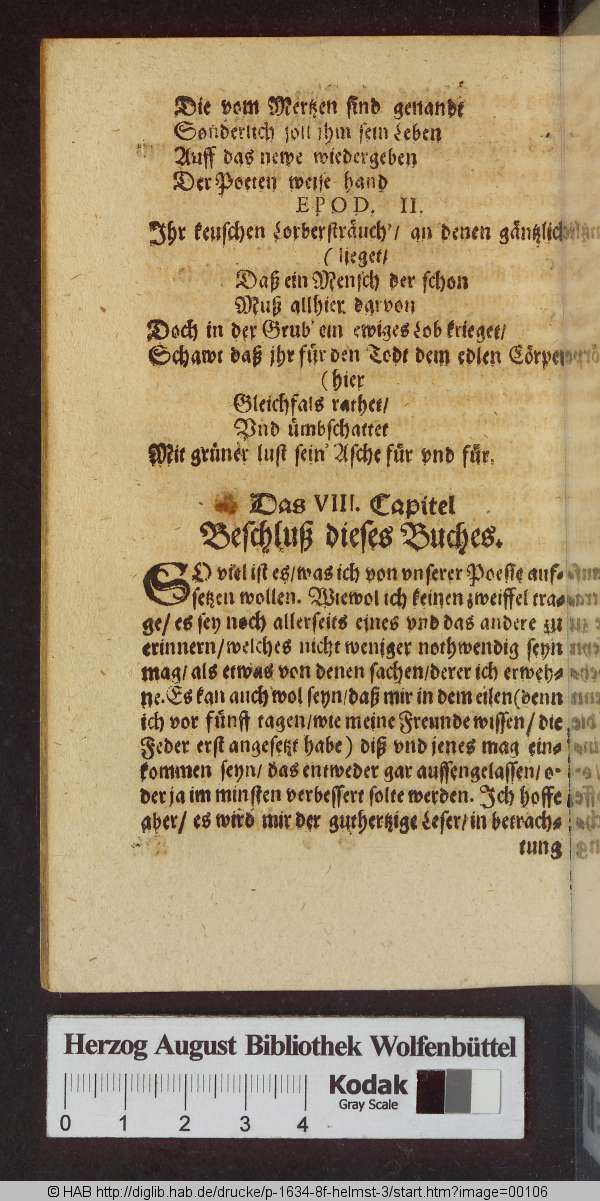 Die vom Mertzen sind genandt
Sonderlich soll jhm sein Leben
Auff das newe wiedergeben
Der Poeten weise hand
EPOD. II.
Jhr keuschen Lorbersträuch'/ an denen gäntzlich
(lieget/
Daß ein Mensch der schon
Muß allhier darvon
Doch in der Grub' ein ewiges Lob krieget/
Schawt daß jhr für den Todt dem edlen Cörper
(hier
Gleichfals rathet/
Vnd ümbschattet
Mit grüner lust sein' Asche für vnd für.
Das VIII. Capitel
Beschluß dieses Buches.
SO viel ist es/ was ich von vnserer Poesie auf-
setzen wollen. Wiewol ich keinen zweiffel tra-
ge/ es sey noch allerseits eines vnd das andere zu
erinnern/ welches nicht weniger nothwendig seyn
mag/ als etwas von denen sachen/ derer ich erweh-
ne. Es kan auch wol seyn/ daß mir in dem eilen (denn
ich vor fünff tagen/ wie meine Freunde wissen/ die
Feder erst angesetzt habe) diß vnd jenes mag ein-
kommen seyn/ das entweder gar aussengelassen/ o-
der ja im minsten verbessert solte werden. Jch hoffe
aber/ es wird mir der guthertzige Leser/ in betrach-
tung
Herzog August Bibliothek Wolfenbüttel
Kodak
Gray Scale
0 1 2 3 4
© HAB http://diglib.hab.de/drucke/p-1634-8f-helmst-3/start.htm?image=00106